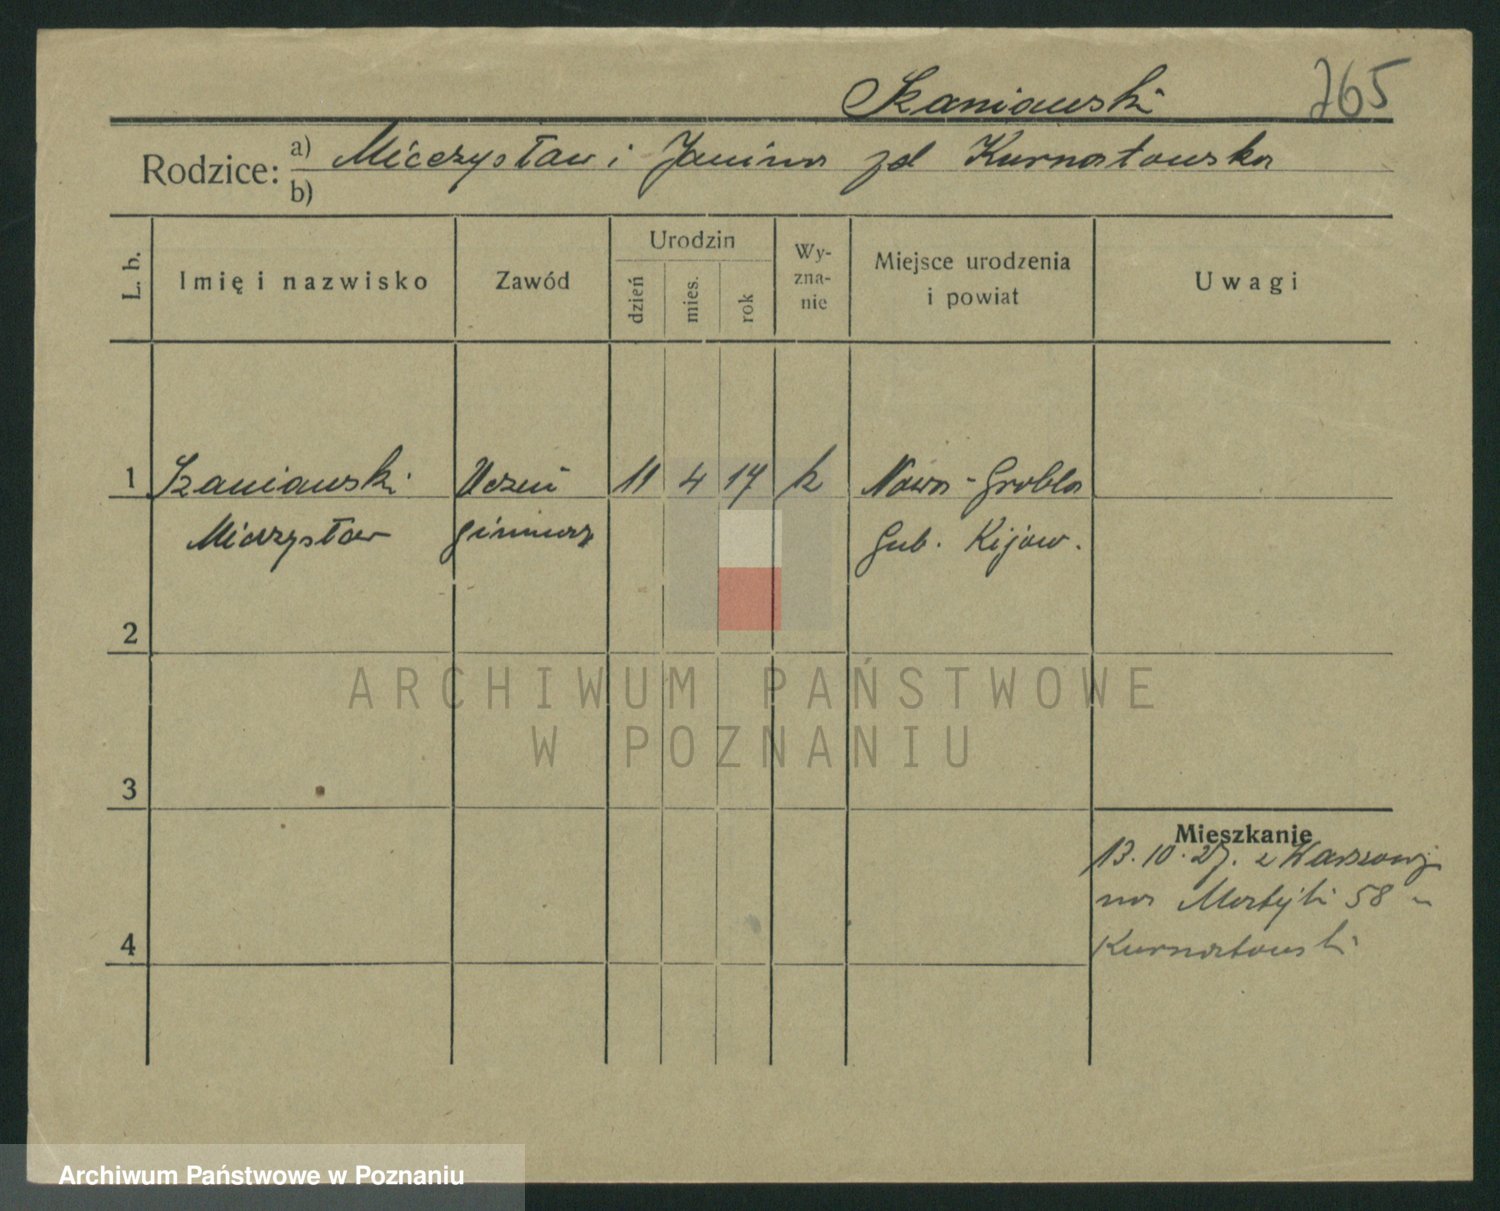 Szaniawski 265
Rodzice: a) Mieczysław i Janina zd Kurnatowska
b)
L. b.
Imię i nazwisko
Zawód
Urodzin
dzień
mies.
rok
Wy-
zna-
nie
Miejsce urodzenia
i powiat
Uwagi
1 Szaniawski Uczeń 11 4 17 k Nowa-Grobla
Mieczysław gimnaz Gub. Kijow.
2
ARCHIWUM PAŃSTWOWE
W POZNANIU
3
Mieszkanie
13.10.27. z Warszawy
na Matejki 58
4
Kurnatowski
Archiwum Państwowe w Poznaniu